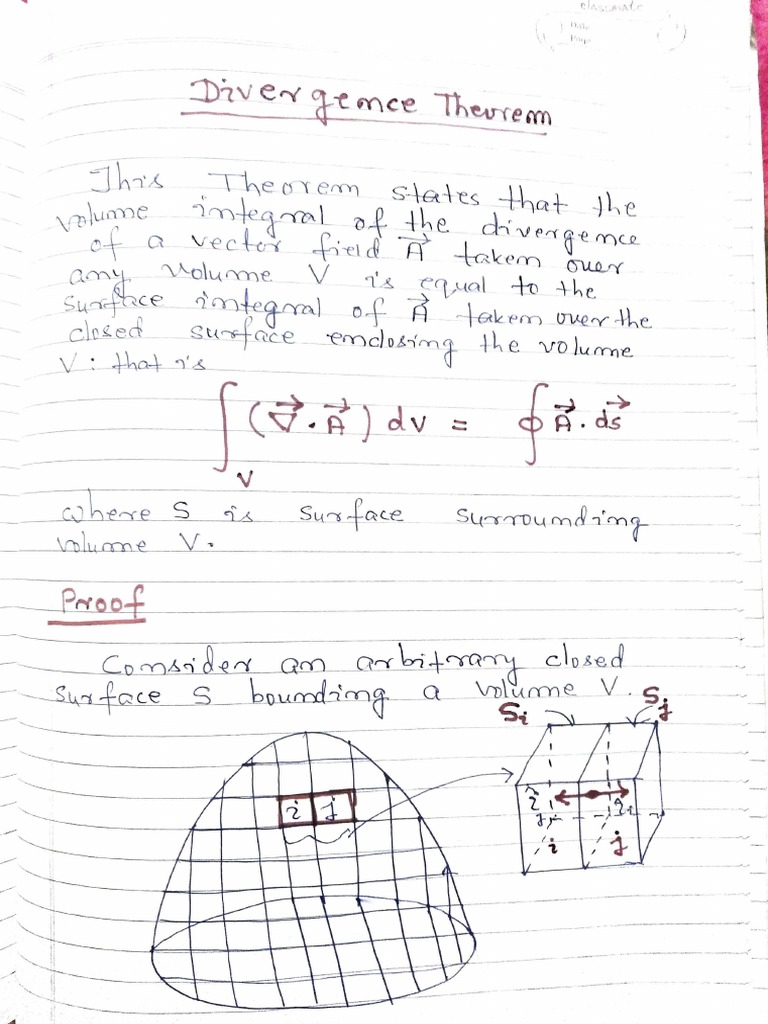 classmate
Date
Page
Divergence Theorem
This Theorem states that the
volume integral of the divergence
of a vector field A⃗ taken over
any volume V is equal to the
surface integral of A⃗ taken over the
closed surface enclosing the volume
V: that is
∫_V (∇⃗ · A⃗) dv = ∮ A⃗ · ds⃗
where S is surface surrounding
volume V.
Proof
Consider an arbitrary closed
surface S bounding a volume V.
Si Sj
i j
i j